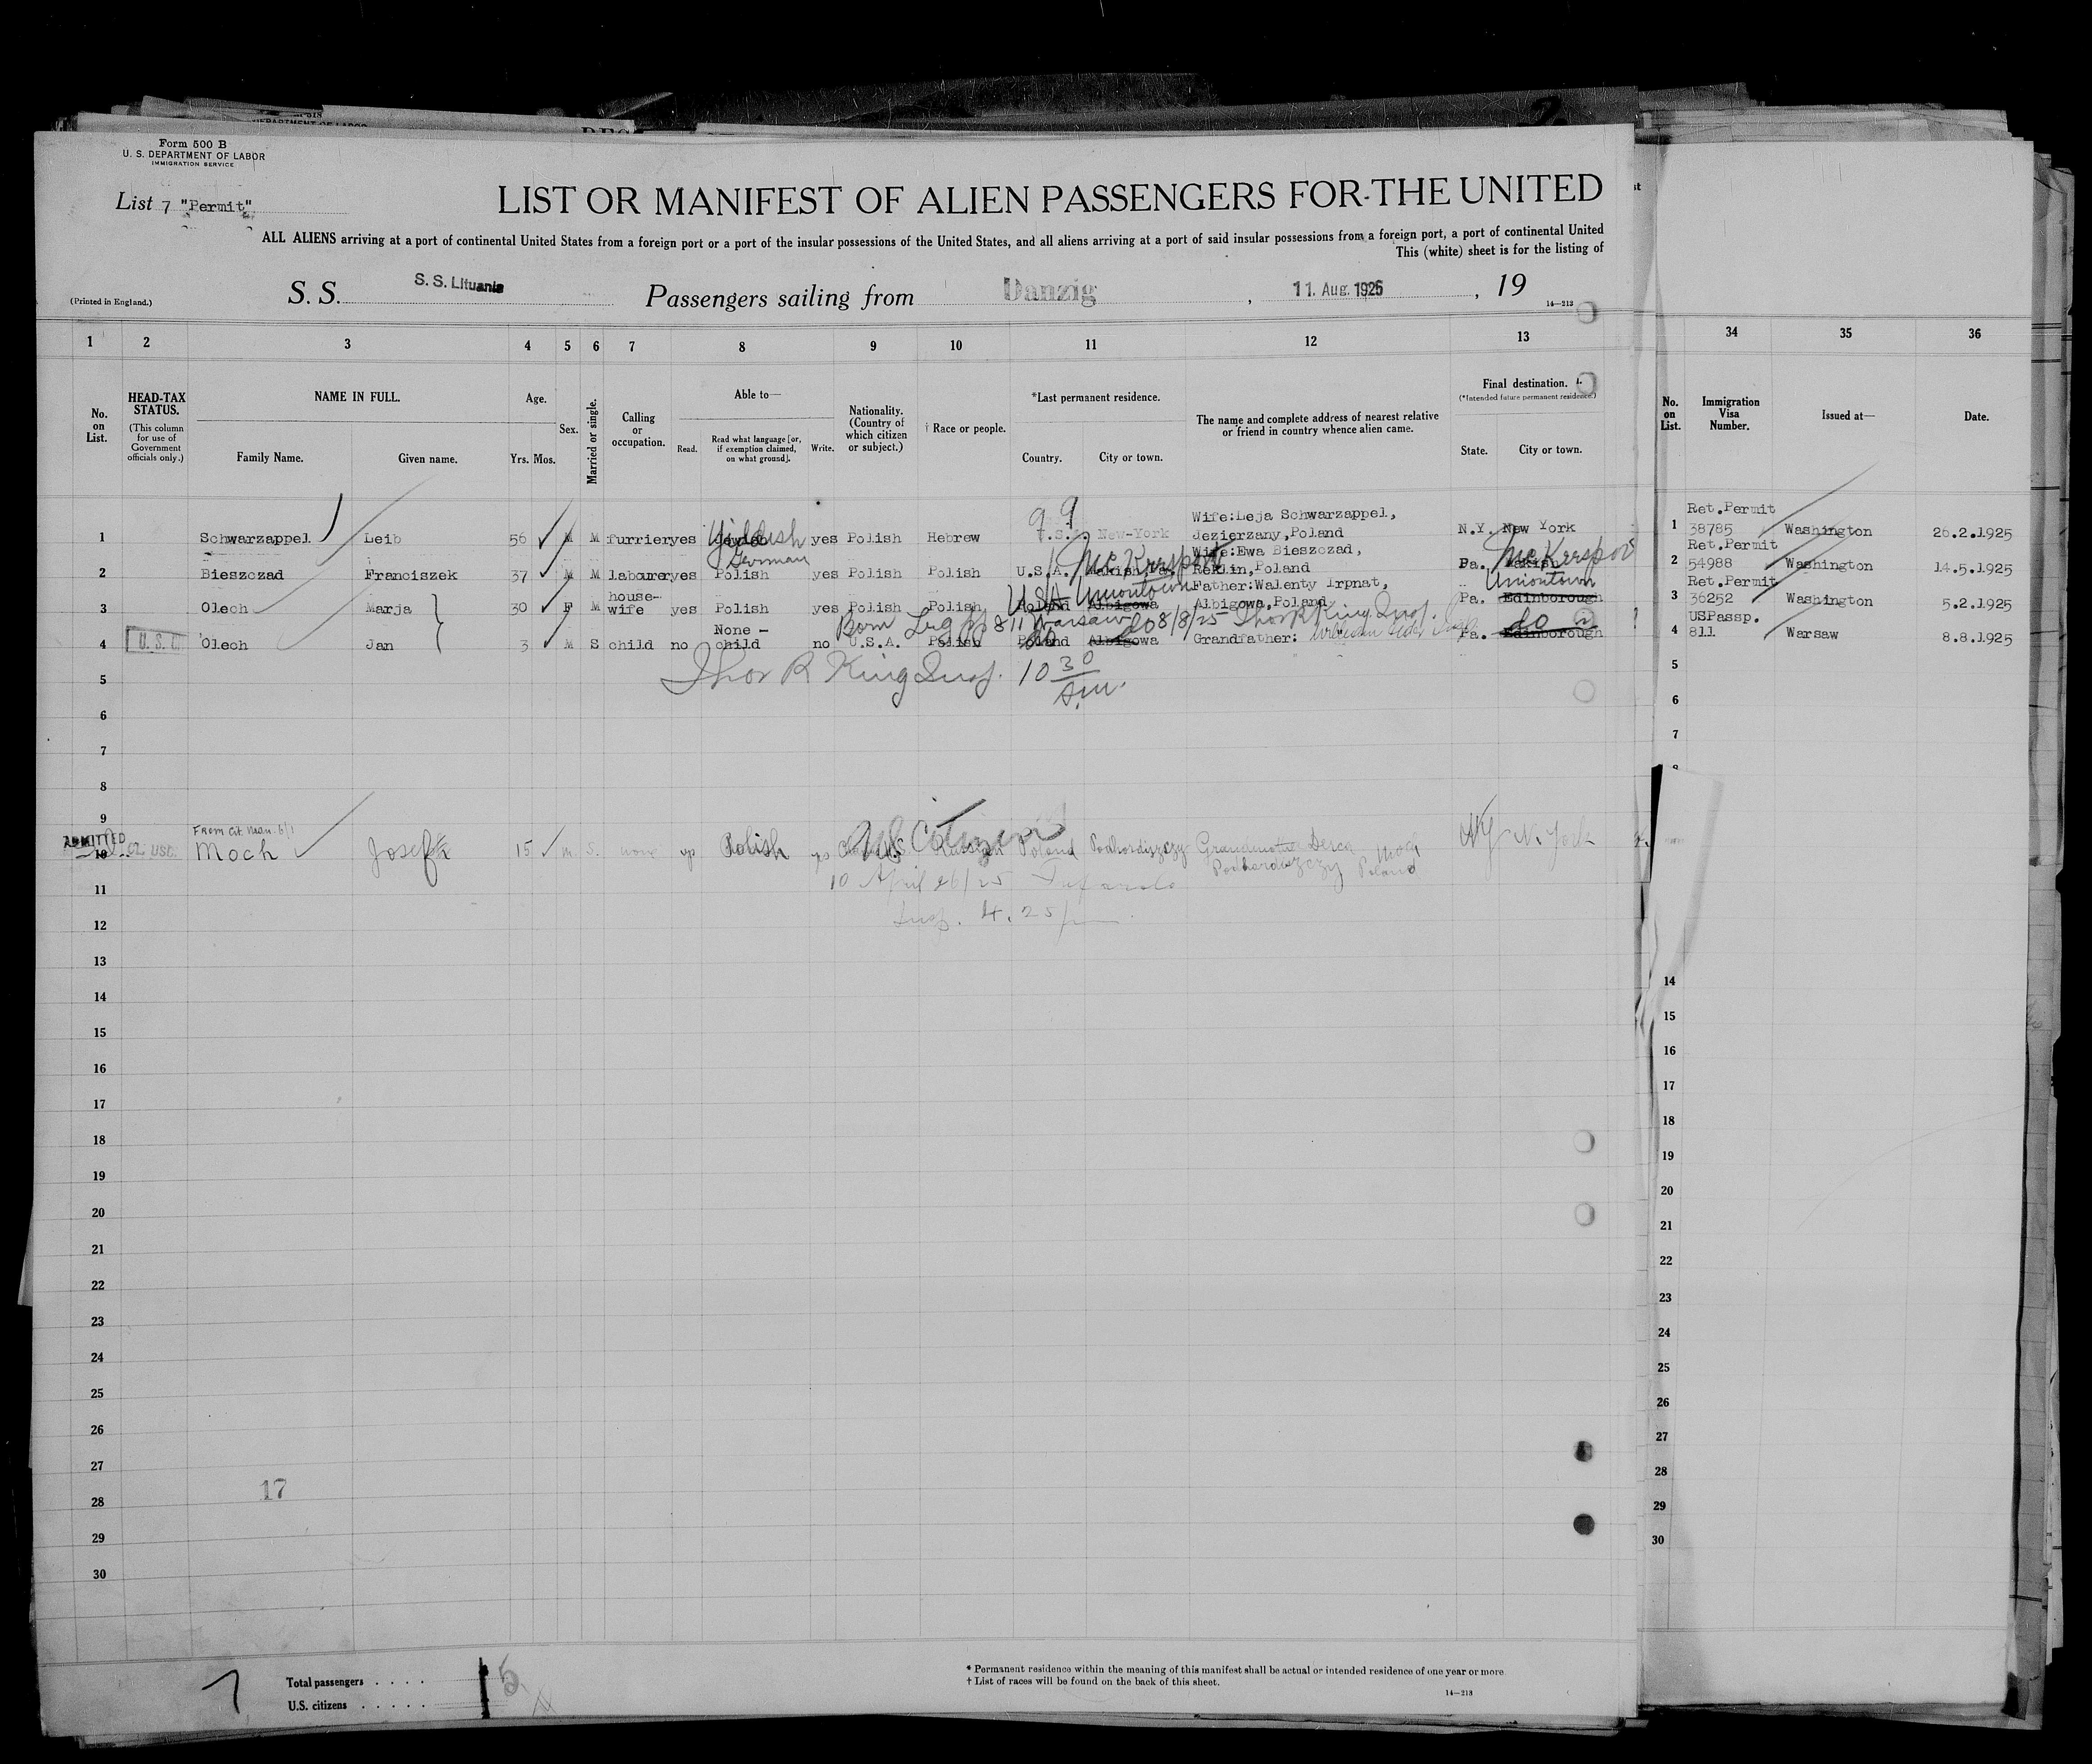 Form 500 B
U. S. DEPARTMENT OF LABOR
IMMIGRATION SERVICE
List 7 "Permit"
LIST OR MANIFEST OF ALIEN PASSENGERS FOR THE UNITED
ALL ALIENS arriving at a port of continental United States from a foreign port or a port of the insular possessions of the United States, and all aliens arriving at a port of said insular possessions from a foreign port, a port of continental United
This (white) sheet is for the listing of
(Printed in England.)
S. S. S. S. Lituania Passengers sailing from Danzig , 11. Aug. 1925 , 19
14—213
1 2 3 4 5 6 7 8 9 10 11 12 13 34 35 36
No. on List.
HEAD-TAX STATUS.
(This column for use of Government officials only.)
NAME IN FULL.
Family Name. Given name.
Age.
Yrs. Mos.
Sex.
Married or single.
Calling or occupation.
Able to—
Read. Read what language [or, if exemption claimed, on what ground]. Write.
Nationality. (Country of which citizen or subject.)
† Race or people.
*Last permanent residence.
Country. City or town.
The name and complete address of nearest relative or friend in country whence alien came.
Final destination.
(*Intended future permanent residence.)
State. City or town.
No. on List.
Immigration Visa Number.
Issued at—
Date.
99
1 Schwarzappel Leib 56 M M furrier yes Yiddish yes Polish Hebrew U.S.A. New-York Wife:Leja Schwarzappel, Jezierzany,Poland N.Y. New York 1 Ret.Permit 38785 Washington 26.2.1925
German
2 Bieszczad Franciszek 37 M M labourer yes Polish yes Polish Polish U.S.A. McKeesport Wife:Ewa Bieszczad, Poland Pa. McKeesport 2 Ret.Permit 54988 Washington 14.5.1925
3 Olech Marja 30 F M house-wife yes Polish yes Polish Polish Poland Albigowa USA Uniontown Father:Walenty Irpnat, Albigowa,Poland Pa. Edinborough Uniontown 3 Ret.Permit 36252 Washington 5.2.1925
Born 811 Warsaw 8/8/25 Thor R King Insp.
4 U.S.C. Olech Jan 3 M S child no None - child no U.S.A. Polish Poland Albigowa do Grandfather: Pa. Edinborough do 4 USPassp. 811 Warsaw 8.8.1925
Thor R King Insp. 10 30 A.M.
5 5
6 6
7 7
8
9
ADMITTED
From Cit. Man. 6/1
10 USC. Moch Josef 15 M. S. none Polish US Citizen Poland Podhordiszczy Grandmother Moch Podhordiszczy Poland NY N. York
10 April 26/25
11
Insp. 4.25 pm
12
13
14 14
15 15
16 16
17 17
18 18
19 19
20 20
21 21
22 22
23 23
24 24
25 25
26 26
27 27
17
28 28
29 29
30 30
7
Total passengers . . . . 5
U.S. citizens . . . . .
* Permanent residence within the meaning of this manifest shall be actual or intended residence of one year or more
† List of races will be found on the back of this sheet.
14—213